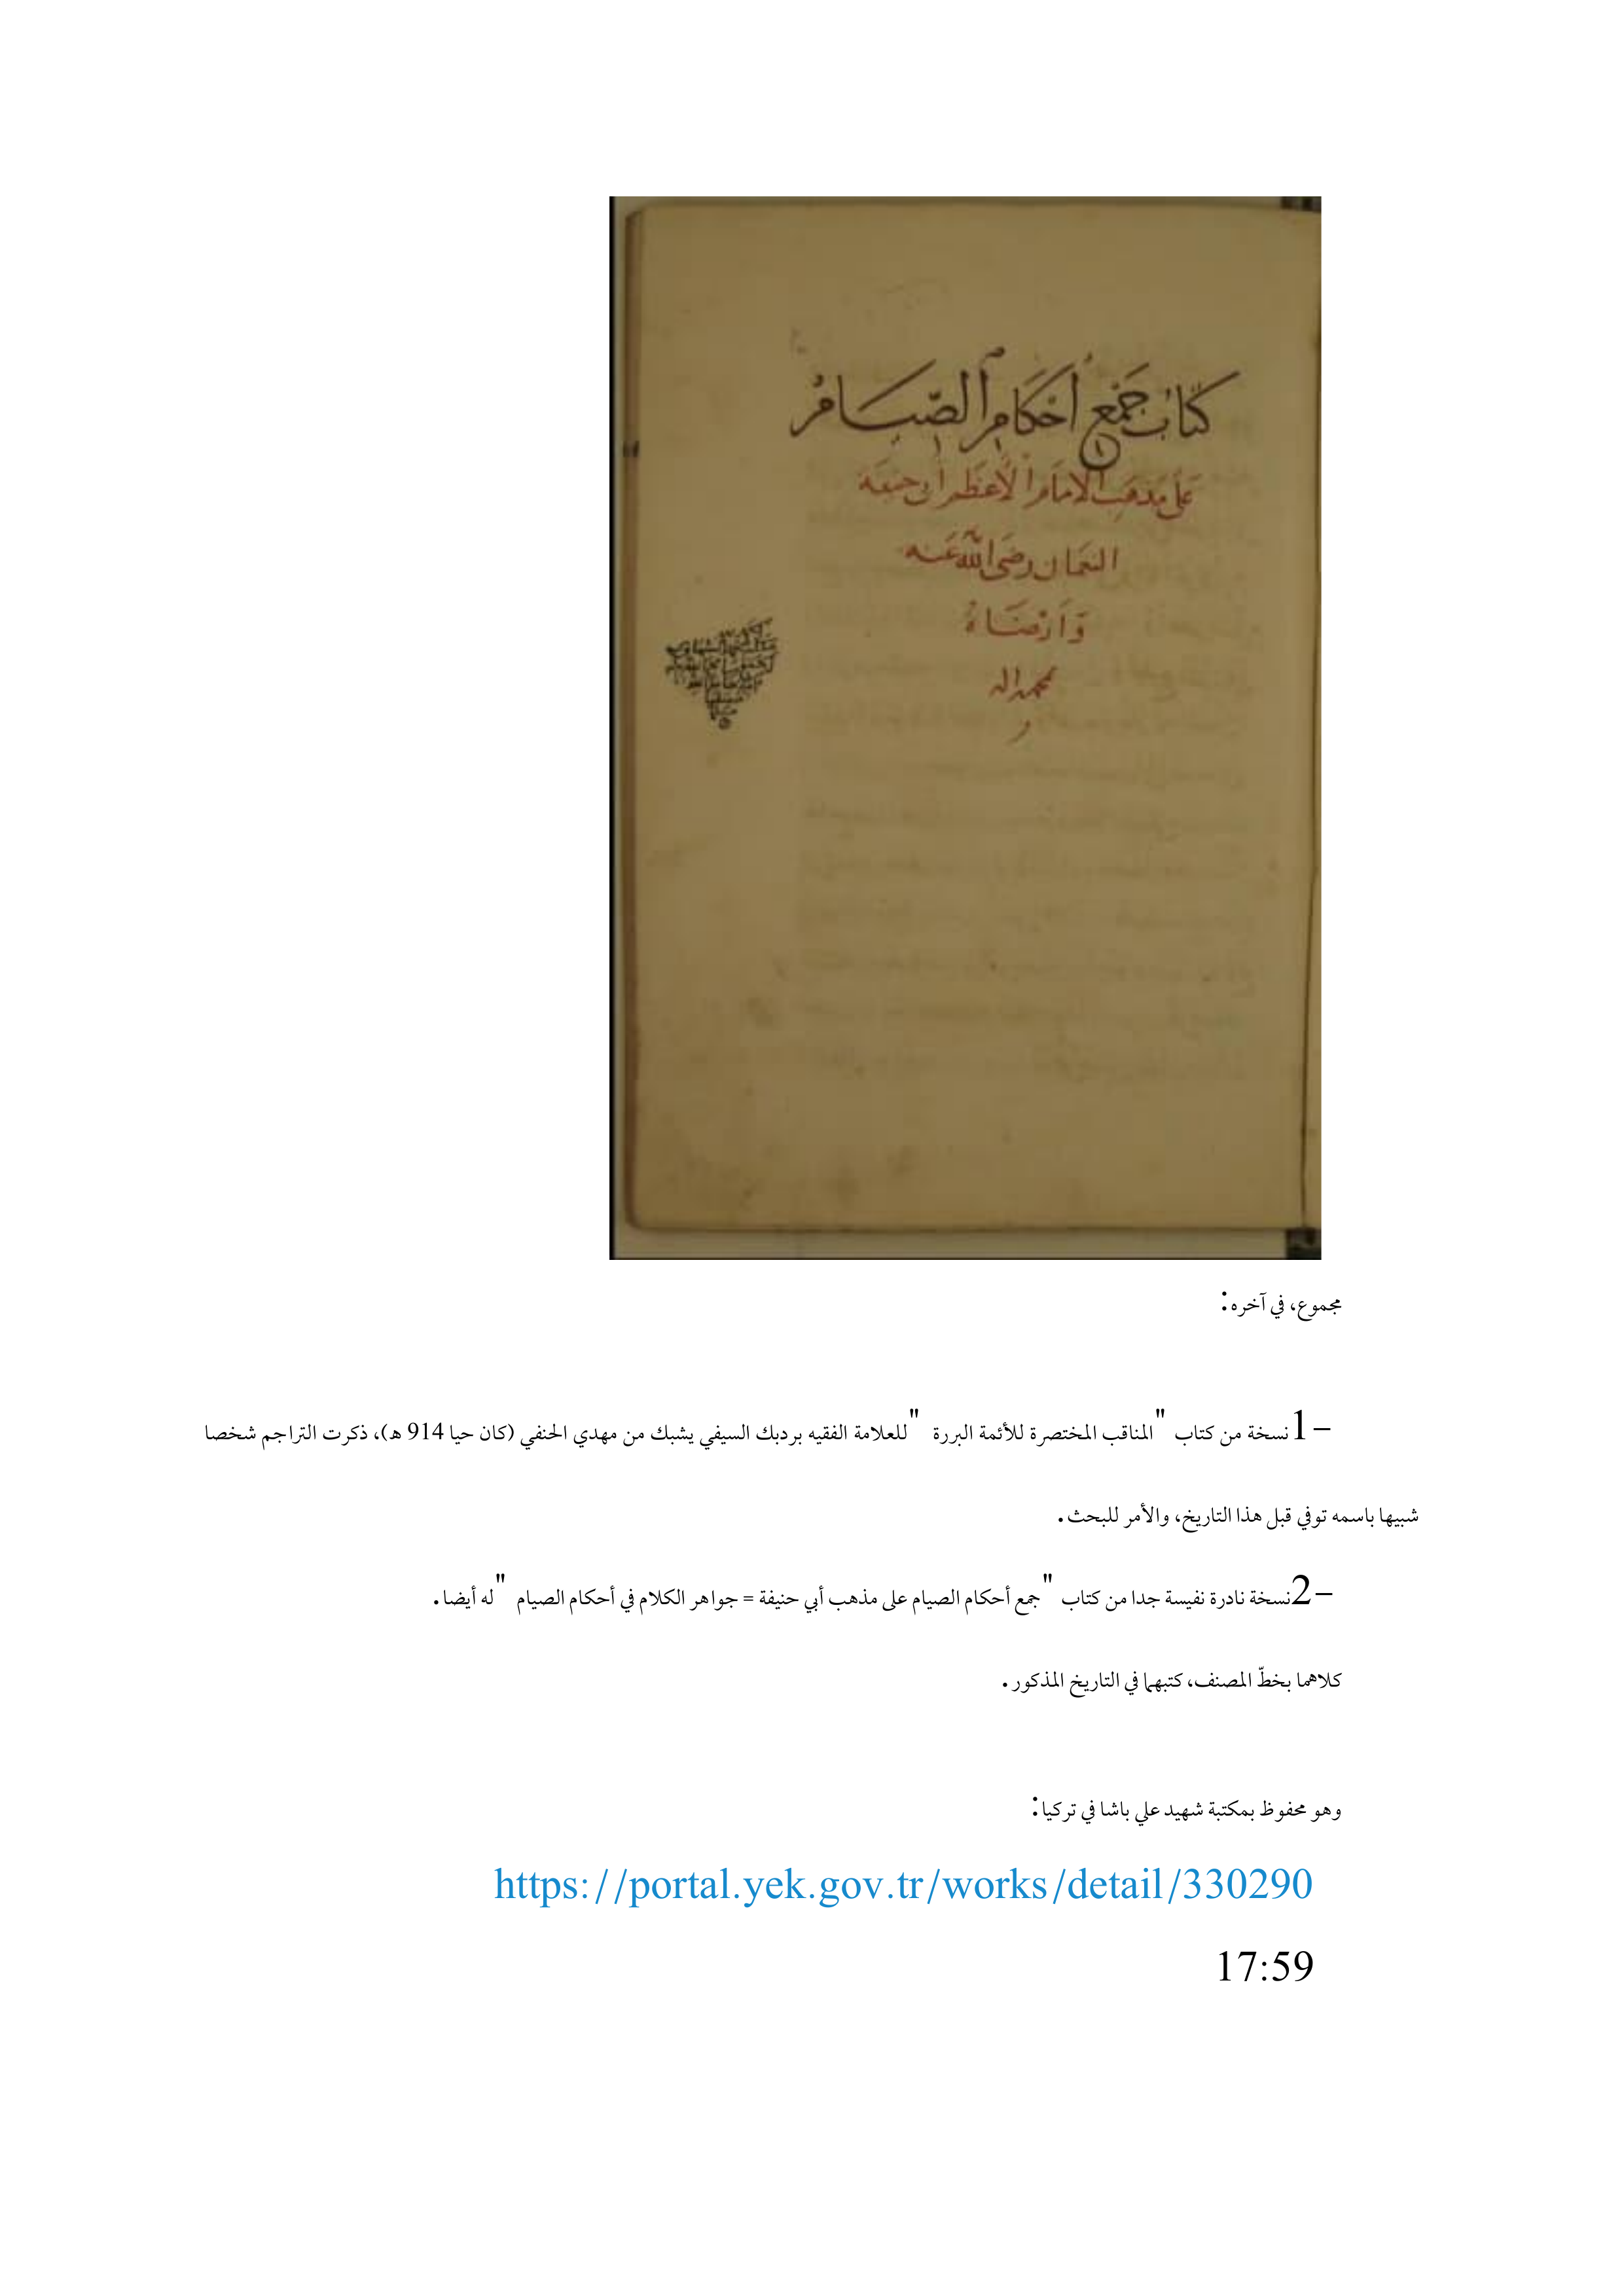 كتاب جمع أحكام الصيام
على مذهب الإمام الأعظم أبي حنيفة
النعمان رضي الله عنه
وأرضاه
بمحمد واله
مجموع، في آخره:
1- نسخة من كتاب "المناقب المختصرة للأئمة البررة" للعلامة الفقيه بردبك السيفي يشبك من مهدي الحنفي (كان حيا 914 هـ)، ذكرت التراجم شخصا
شبيها باسمه توفي قبل هذا التاريخ، والأمر للبحث.
2- نسخة نادرة نفيسة جدا من كتاب "جمع أحكام الصيام على مذهب أبي حنيفة = جواهر الكلام في أحكام الصيام" له أيضا.
كلاهما بخطّ المصنف، كتبهما في التاريخ المذكور.
وهو محفوظ بمكتبة شهيد علي باشا في تركيا:
https://portal.yek.gov.tr/works/detail/330290
17:59